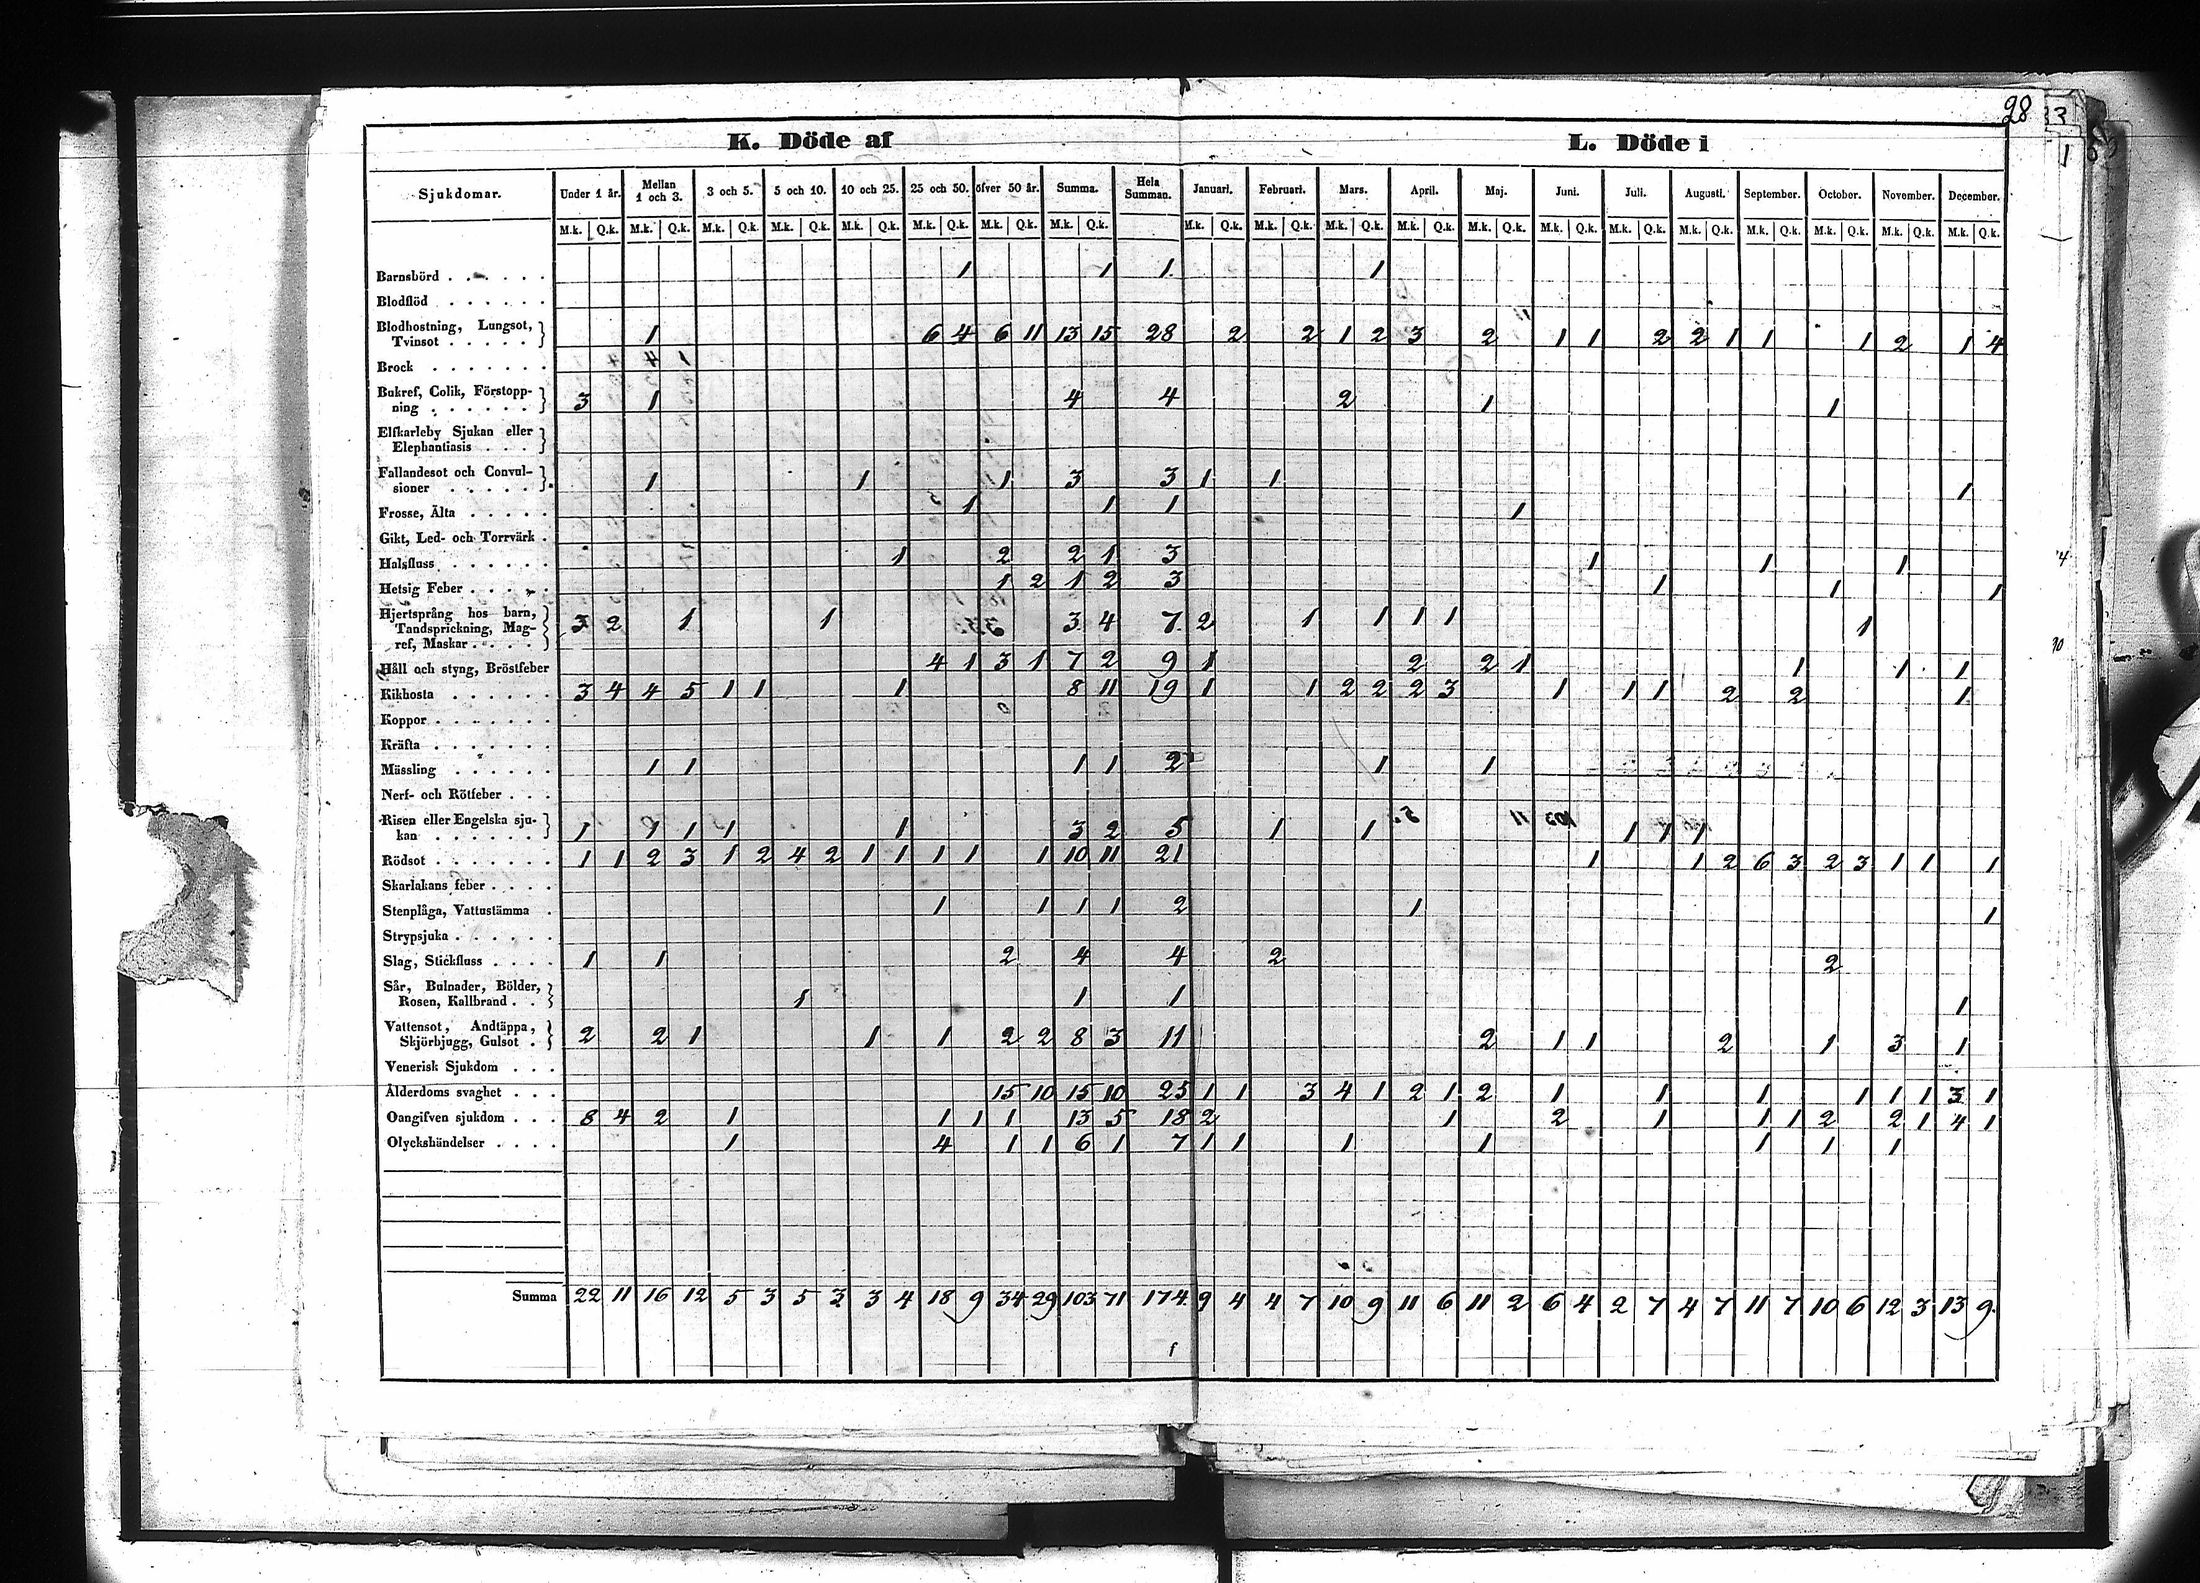 28
K. Döde af L. Döde i
Sjukdomar. Under 1 år. Mellan 1 och 3. 3 och 5. 5 och 10. 10 och 25. 25 och 50. öfver 50 år. Summa. Hela Summan. Januari. Februari. Mars. April. Maj. Juni. Juli. Augusti. September. October. November. December.
M.k. Q.k. M.k. Q.k. M.k. Q.k. M.k. Q.k. M.k. Q.k. M.k. Q.k. M.k. Q.k. M.k. Q.k. M.k. Q.k. M.k. Q.k. M.k. Q.k. M.k. Q.k. M.k. Q.k. M.k. Q.k. M.k. Q.k. M.k. Q.k. M.k. Q.k. M.k. Q.k. M.k. Q.k. M.k. Q.k.
Barnsbörd . . . . . . 1 1 1 1
Blodflöd . . . . . .
Blodhostning, Lungsot,
Tvinsot . . . . . 1 6 4 6 11 13 15 28 2 2 1 2 3 2 1 1 2 2 1 1 1 2 1 4
Brock . . . . . . .
Bukref, Colik, Förstopp-
ning . . . . . . 3 1 4 4 2 1 1
Elfkarleby Sjukan eller
Elephantiasis . . .
Fallandesot och Convul-
sioner . . . . . 1 1 1 3 3 1 1 1
Frosse, Älta . . . . . 1 1 1 1
Gikt, Led- och Torrvärk .
Halsfluss . . . . . . 1 2 2 1 3 1 1 1
Hetsig Feber . . . . . 1 2 1 2 3 1 1 1
Hjertsprång hos barn,
Tandsprickning, Mag-
ref, Maskar . . . . 3 2 1 1 3 4 7 2 1 1 1 1 1
Håll och styng, Bröstfeber 4 1 3 1 7 2 9 1 2 2 1 1 1 1
Kikhosta . . . . . . 3 4 4 5 1 1 1 8 11 19 1 1 2 2 2 3 1 1 1 2 2 1
Koppor . . . . . . .
Kräfta . . . . . . .
Mässling . . . . . . 1 1 1 1 2 1 1
Nerf- och Rötfeber . . .
Risen eller Engelska sju-
kan . . . . . . 1 1 1 1 1 3 2 5 1 1 1 1 1
Rödsot . . . . . . . 1 1 2 3 1 2 4 2 1 1 1 1 1 10 11 21 1 1 2 6 3 2 3 1 1 1
Skarlakans feber . . . .
Stenplåga, Vattustämma . 1 1 1 1 2 1 1
Strypsjuka . . . . . .
Slag, Stickfluss . . . . 1 1 2 4 4 2 2
Sår, Bulnader, Bölder,
Rosen, Kallbrand . . 1 1 1 1
Vattensot, Andtäppa,
Skjörbjugg, Gulsot . 2 2 1 1 1 2 2 8 3 11 2 1 1 2 1 3 1
Venerisk Sjukdom . . .
Ålderdoms svaghet . . . 15 10 15 10 25 1 1 3 4 1 2 1 2 1 1 1 1 1 1 3 1
Oangifven sjukdom . . . 8 4 2 1 1 1 1 13 5 18 2 1 2 1 1 1 2 2 1 4 1
Olyckshändelser . . . . 1 4 1 1 6 1 7 1 1 1 1 1 1 1
Summa 22 11 16 12 5 3 5 3 3 4 18 9 34 29 103 71 174 9 4 4 7 10 9 11 6 11 2 6 4 2 7 4 7 11 7 10 6 12 3 13 9